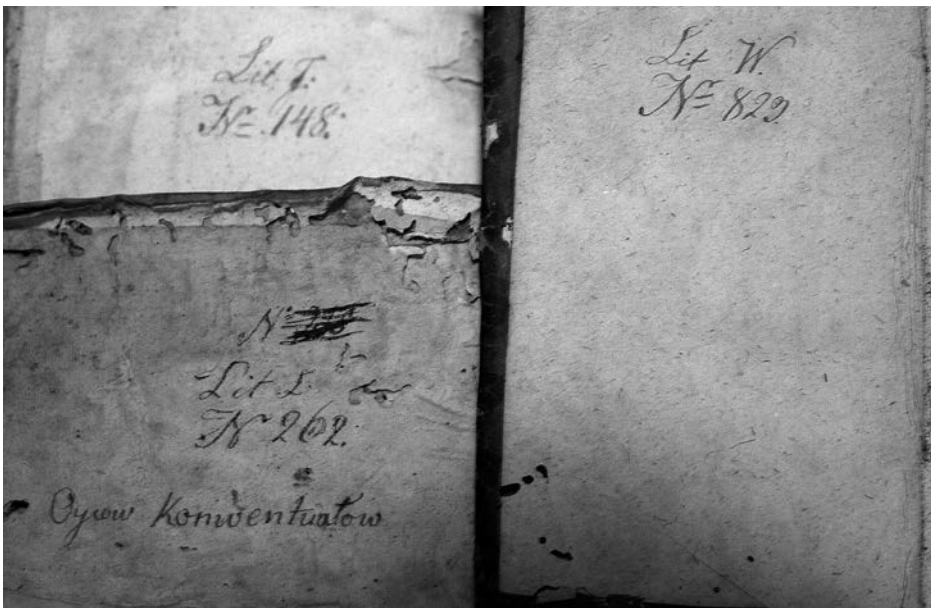 Lit. T.
No 148.
No
Lit L.
No 262.
Oycow Konwentuałow
Lit W.
No 829